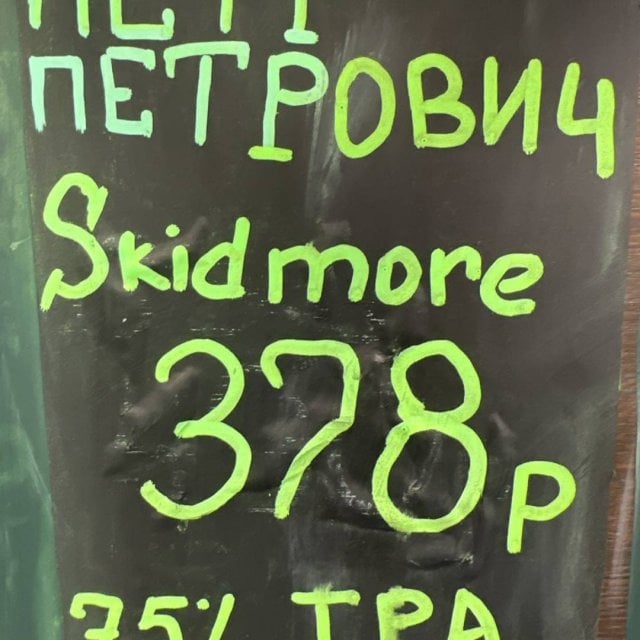 ПЕТРОВИЧ
Skidmore
378р
75% ТРА